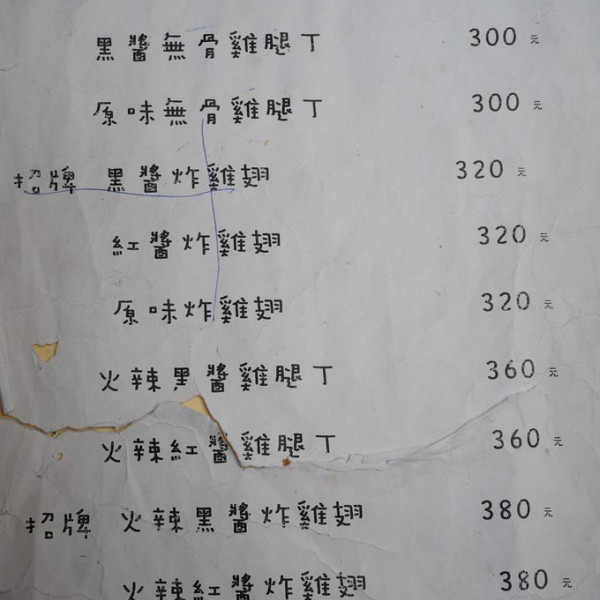 黑醬無骨雞腿丁 300元
原味無骨雞腿丁 300元
招牌 黑醬炸雞翅 320元
紅醬炸雞翅 320元
原味炸雞翅 320元
火辣黑醬雞腿丁 360元
火辣紅醬雞腿丁 360元
招牌 火辣黑醬炸雞翅 380元
火辣紅醬炸雞翅 380元